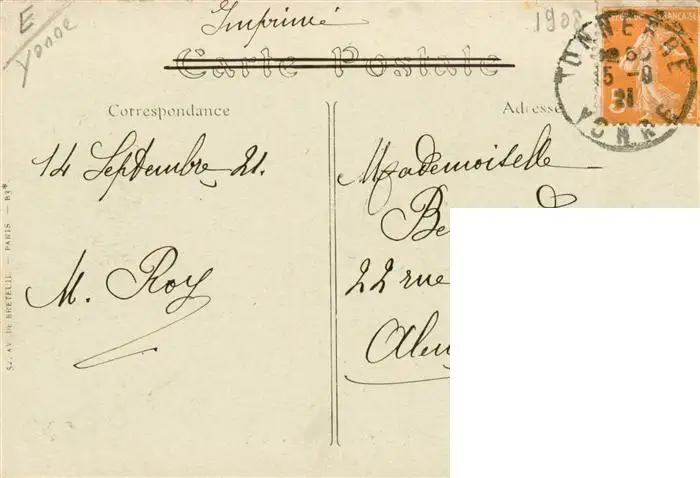 E
Yonne
Imprimé
1908
Carte Postale
TONNERRE
YONNE
Correspondance
Adresse
14 Septembre 21.
M. Roy
Mademoiselle
22 rue
52, AV. DE BRETEUIL — PARIS — B3*